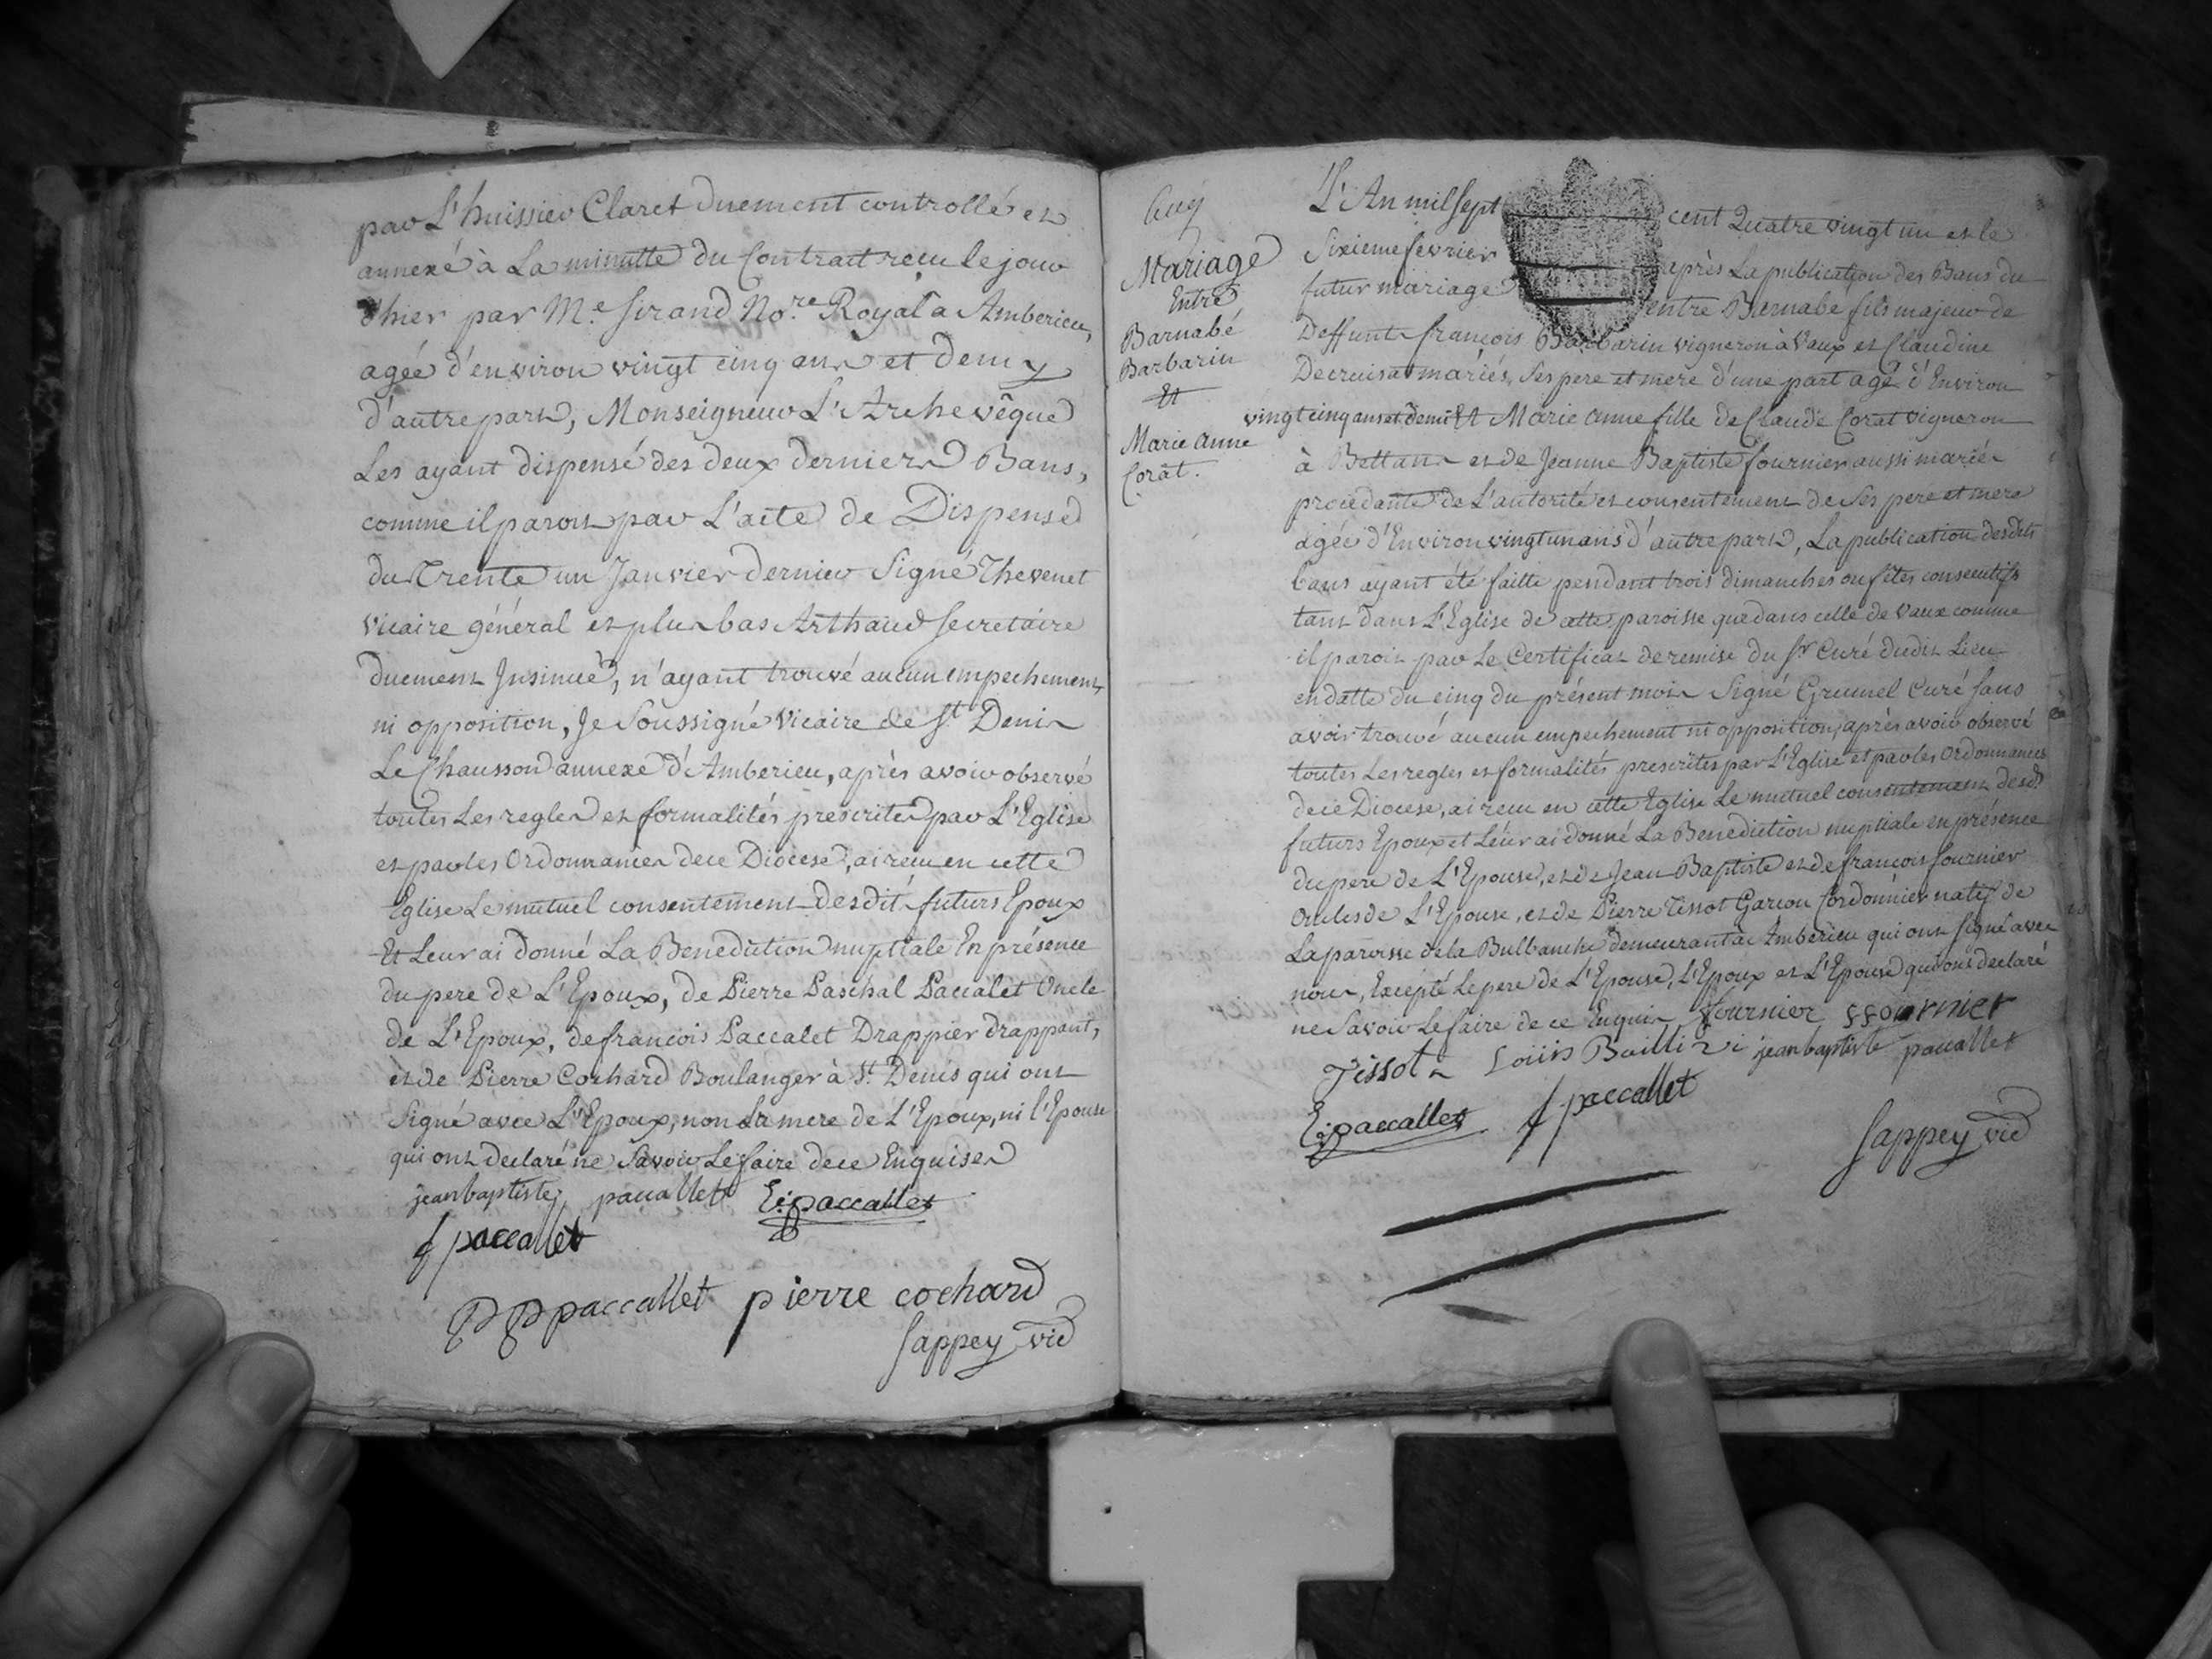 par L'huissier Claret duement controllé et
annexé à La minutte du Contrait recu le jour
d'hier par M.e Sirand No.re Royal a Amberieu,
agée d'environ vingt cinq ans et demy
d'autre part, Monseigneur L'Archevêque
Les ayant dispensé des deux derniers Bans,
comme il paroit par L'acte de Dispense
du Trente un Janvier dernier Signé Thevenet
vicaire général et plus bas Arthaud Secretaire
duement Insinué, n'ayant trouvé aucun empechement
ni opposition, Je Soussigné Vicaire de St Denis
Le Chausson annexe d'Amberieu, après avoir observé
toutes Les regles et formalités prescrites par L'Eglise
et par les Ordonnances de ce Diocese, ai recu en cette
Eglise Le mutuel consentement desdit futurs Epoux
Et Leur ai donné La Benediction nuptiale En présence
du pere de L'Epoux, de Pierre Paschal Paccalet Oncle
de L'Epoux, de francois Paccalet Drappier drappant,
et de Pierre Cochard Boulanger à St Denis qui ont
Signé avec L'Epoux, non La mere de L'Epoux, ni l'Epouse
qui ont declaré ne Savoir Le faire de ce Enquises
jean baptiste paccallet E: paccallet
f paccallet
PP paccallet pierre cochard
Sappey vic
Mariage
Entre
Barnabé
Barbarin
Et
Marie Anne
Corat.
L'An mil Sept cent Quatre vingt un et le
Sixieme fevrier après La publication des Bans du
futur mariage entre Barnabé fils majeur de
Deffunt françois Barbarin vigneron à Vaux et Claudine
Decruisat mariés, Ses pere et mere d'une part agé d'Environ
vingt cinq ans et demi Et Marie Anne fille de Claude Corat vigneron
à Bettans et de Jeanne Baptiste fournier aussi mariés
procedante de L'autorité et consentement de Ses pere et mere
agée d'Environ vingt un ans d'autre part, La publication desdits
bans ayant été faitte pendant trois dimanches ou fêtes consecutifs
tant dans L'Eglise de cette paroisse que dans celle de Vaux comme
il paroit par Le Certificat de remise du Sr Curé dudit Lieu
en datte du cinq du présent mois Signé Grumel Curé Sans
avoir trouvé aucun empechement ni opposition, après avoir observé
toutes Les regles et formalités prescrites par L'Eglise et par les Ordonnances
de ce Diocese, ai recu en cette Eglise Le mutuel consentement desd
futurs Epoux et Leur ai donné La Benediction nuptiale en présence
du pere de L'Epouse, et de Jean Baptiste et de francois fournier
Oncles de L'Epouse, et de Pierre Tissot Garcon Cordonnier natif de
La paroisse de la Bulbanche demeurant à Amberieu qui ont Signé avec
nous, Excepté Le pere de L'Epouse, L'Epoux et L'Epouse qui ont declaré
ne Savoir Le faire de ce Enquis fournier ffournier
Tissot jean baptiste paccallet
E: paccallet f paccallet
Sappey vic